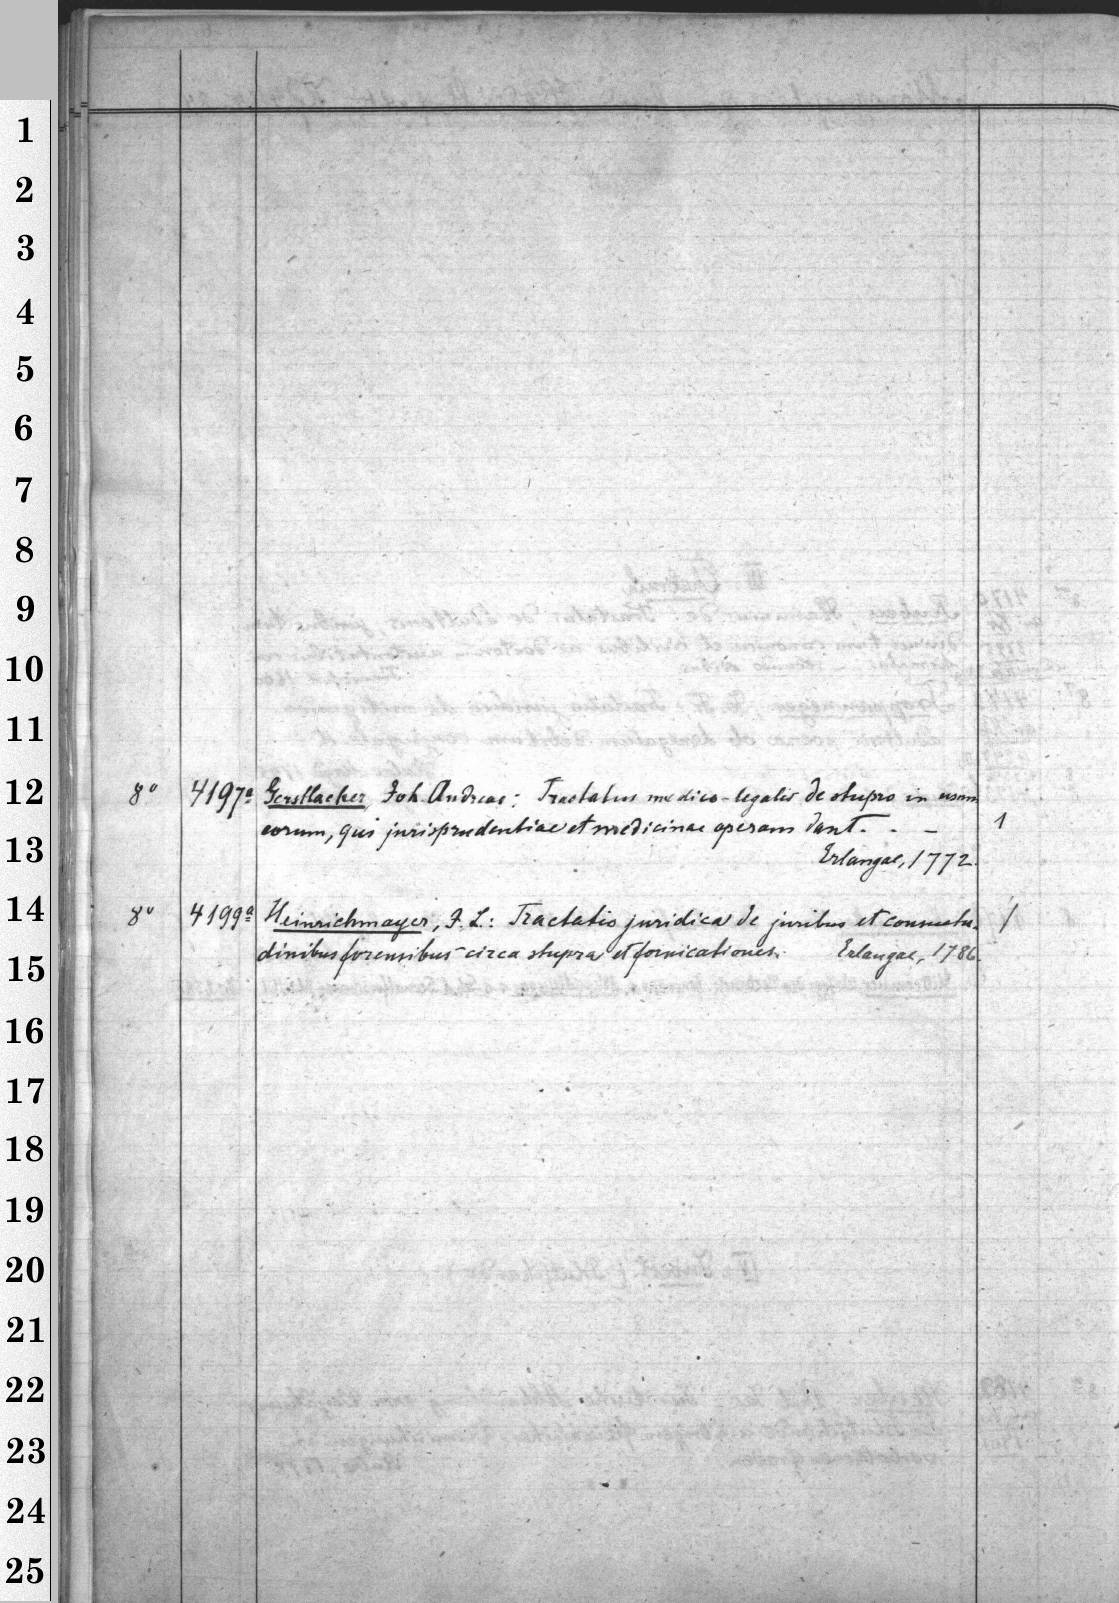 1
2
3
4
5
6
7
8
9
10
11
12
8° 4197a Gerstlacher Joh. Andreas: Tractatus medico-legalis de stupro in usum
eorum, qui jurisprudentiae et medicinae operam dant. . – 1
13
Erlangae, 1772.
14
8° 4199a Heinrichmayer, F. L.: Tractatio juridica de juribus et consuetu- 1
dinibus forensibus circa stupra et fornicationes. Erlangae, 1786.
15
16
17
18
19
20
21
22
23
24
25